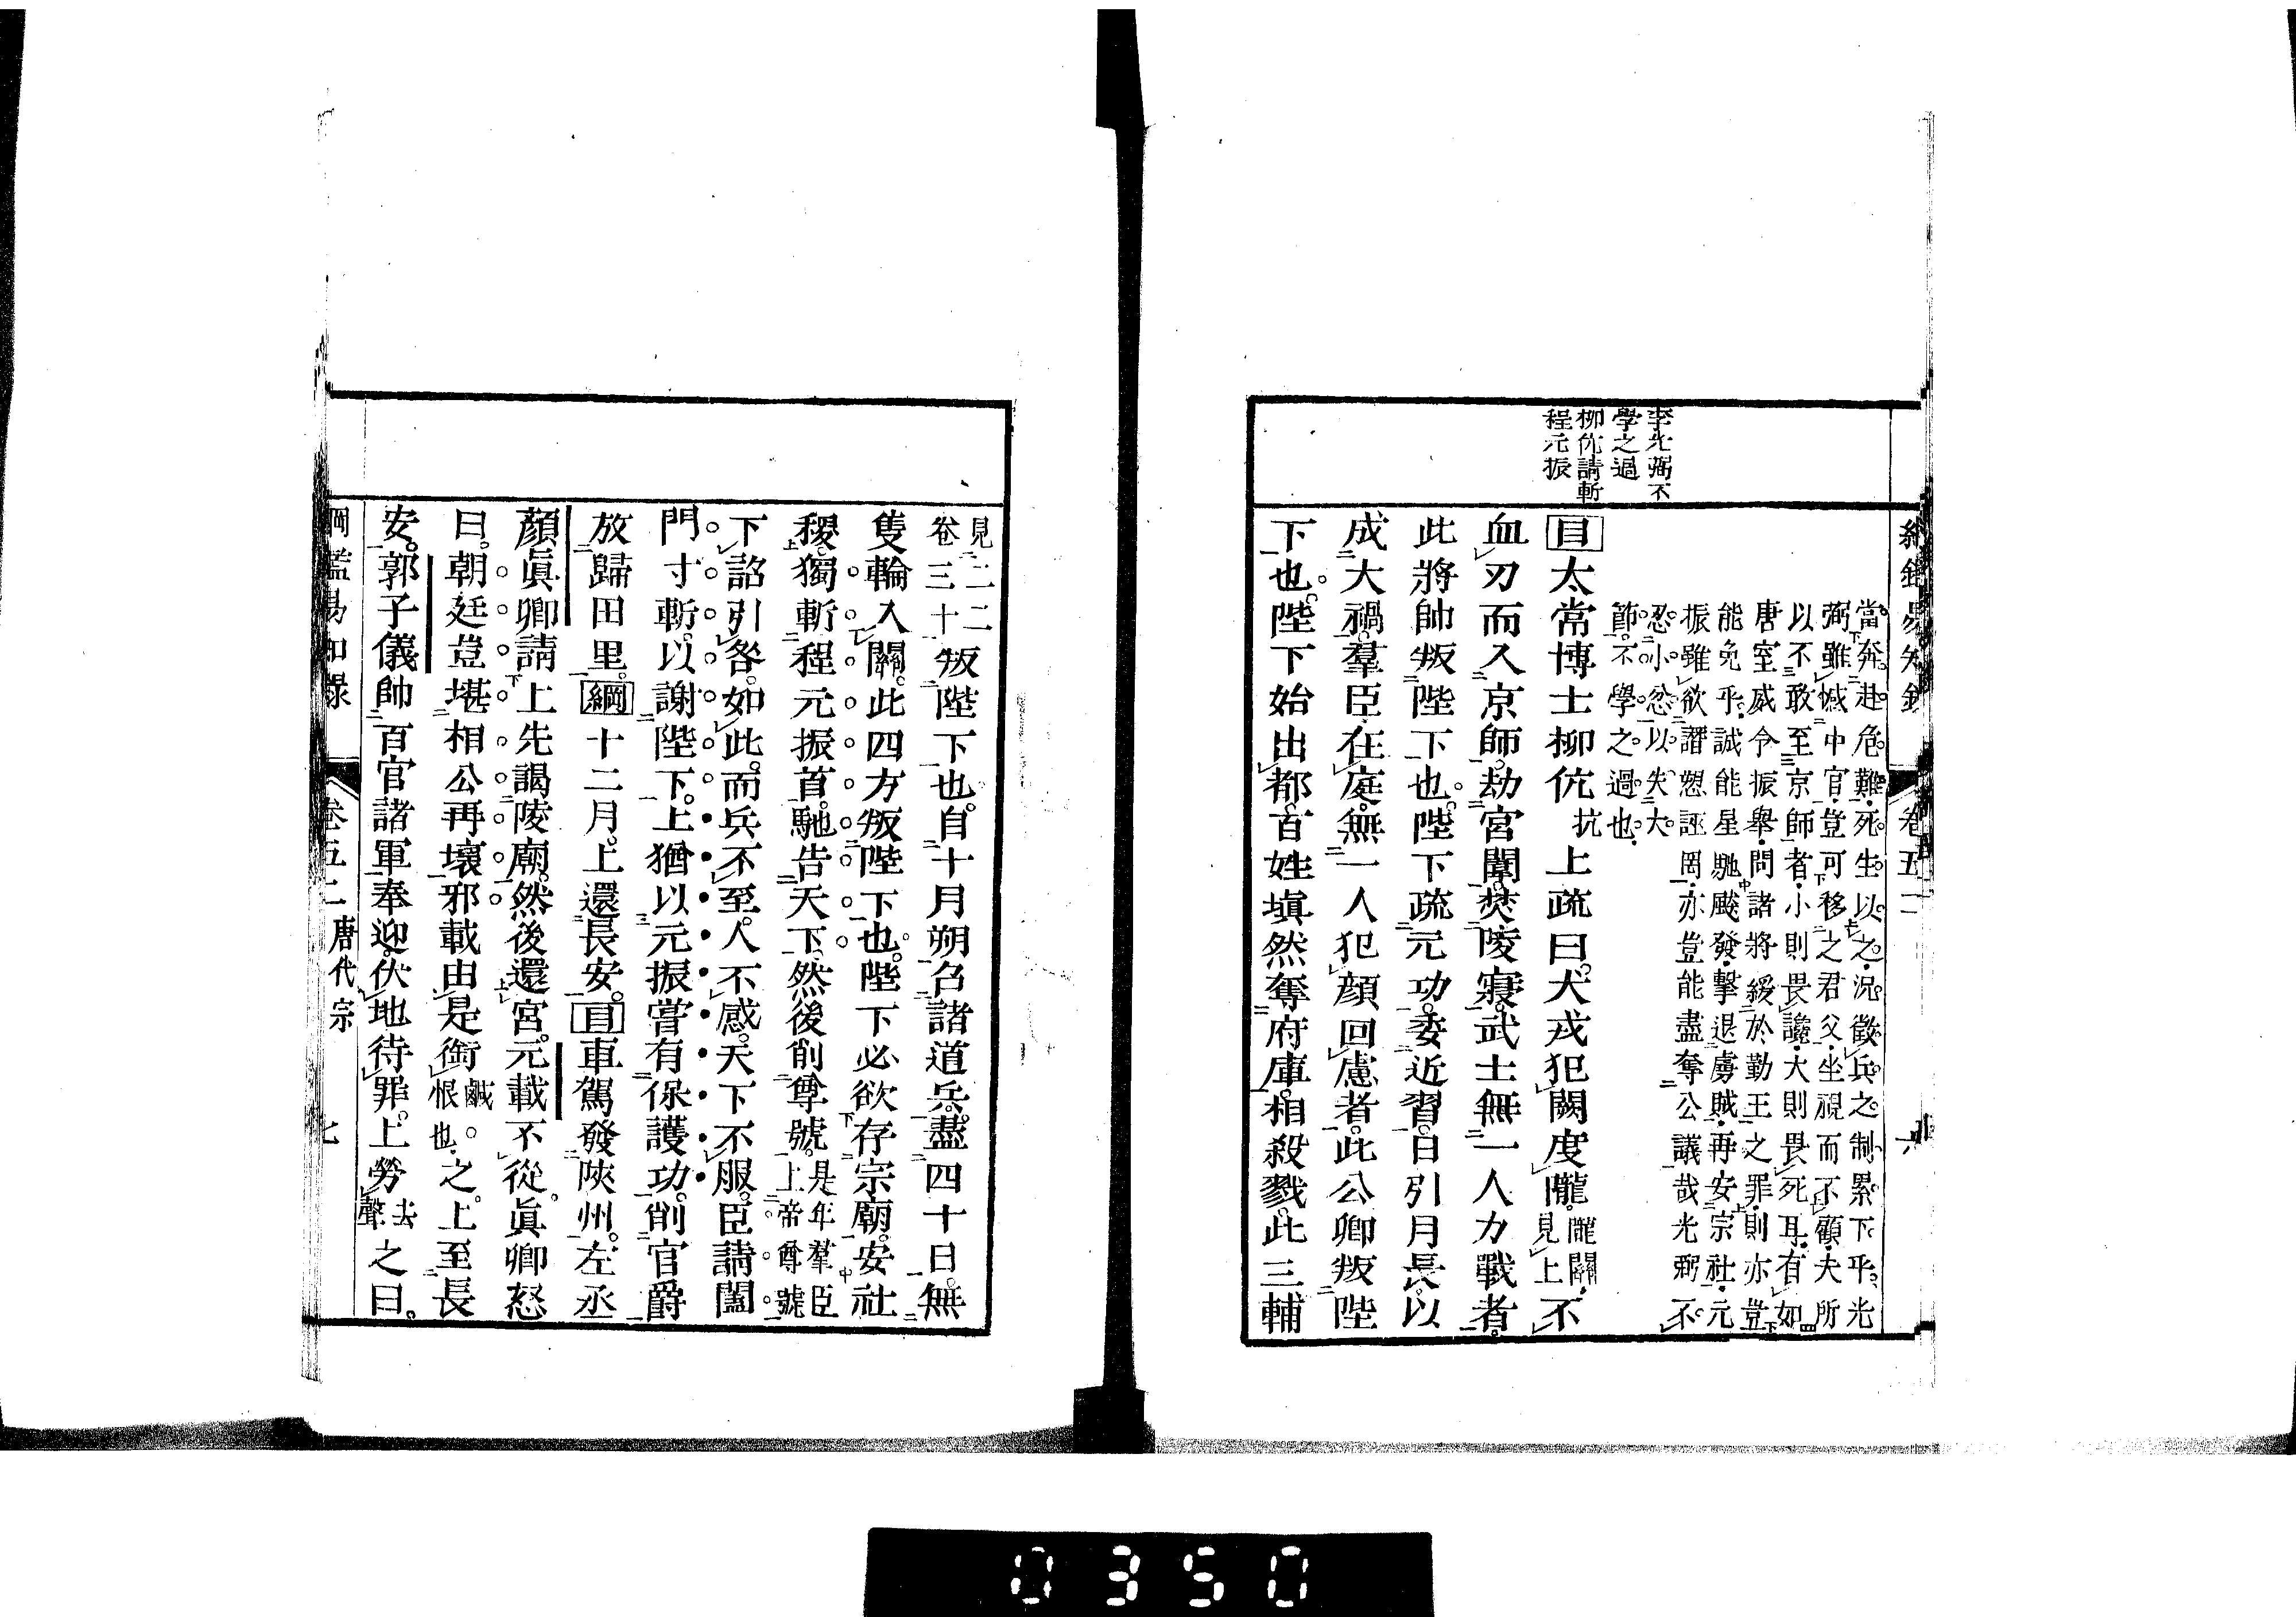 李光弼不
學之過
柳伉請斬
程元振
卷五二
六
當奔赴危難死生以之況徵兵之制累下乎光
弼雖憾中官豈可移之君父坐視而不顧夫所
以不敢至京師者小則畏讒大則畏死耳有如
唐室威令振舉問諸將緩於勤王之罪則亦豈
能免乎誠能星馳飈發擊退虜賊再安宗社元
振雖欲譖愬誣罔亦豈能盡奪公議哉光弼不
忍小忿以失大
節不學之過也
目太常博士柳伉抗上疏曰犬戎犯關度隴隴關見上不
血刃而入京師劫宮闈焚陵寢武士無一人力戰者
此將帥叛陛下也陛下疏元功委近習日引月長以
成大禍羣臣在庭無一人犯顏回慮者此公卿叛陛
下也陛下始出都百姓塡然奪府庫相殺戮此三輔
見二二卷三十叛陛下也自十月朔召諸道兵盡四十日無
隻輪入關此四方叛陛下也陛下必欲存宗廟安社
稷獨斬程元振首馳告天下然後削尊號是年羣臣上帝尊號
下詔引咎如此而兵不至人不感天下不服臣請闔
門寸斬以謝陛下上猶以元振嘗有保護功削官爵
放歸田里綱十二月上還長安目車駕發陝州左丞
顏眞卿請上先謁陵廟然後還宮元載不從眞卿怒
曰朝廷豈堪相公再壞邪載由是銜鹹恨也之上至長
安郭子儀帥百官諸軍奉迎伏地待罪上勞去聲之曰
綱鑑易知録
卷五二
唐代宗
七
0350